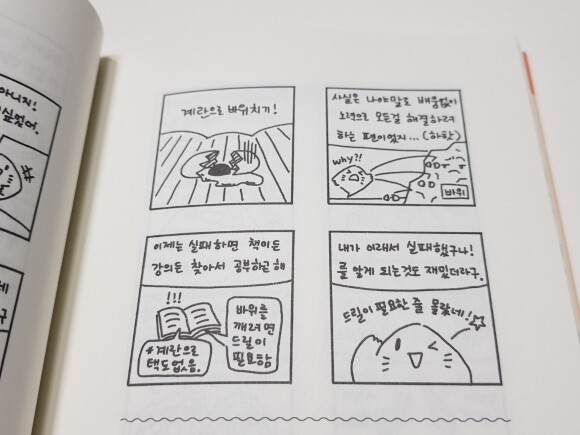 아니지!
싶었어,
계란으로 바위치기!
사실은 나야말로 배움없이
노력으로 모든걸 해결하려
하는 편이었지... (하핫)
why?!
바위
이제는 실패하면 책이든
강의든 찾아서 공부하곤 해
!!!
#계란으로
택도없음.
바위를
깨려면
드릴이
필요함
내가 이래서 실패했구나!
를 알게 되는것도 재밌더라구.
드릴이 필요한 줄 몰랐네!